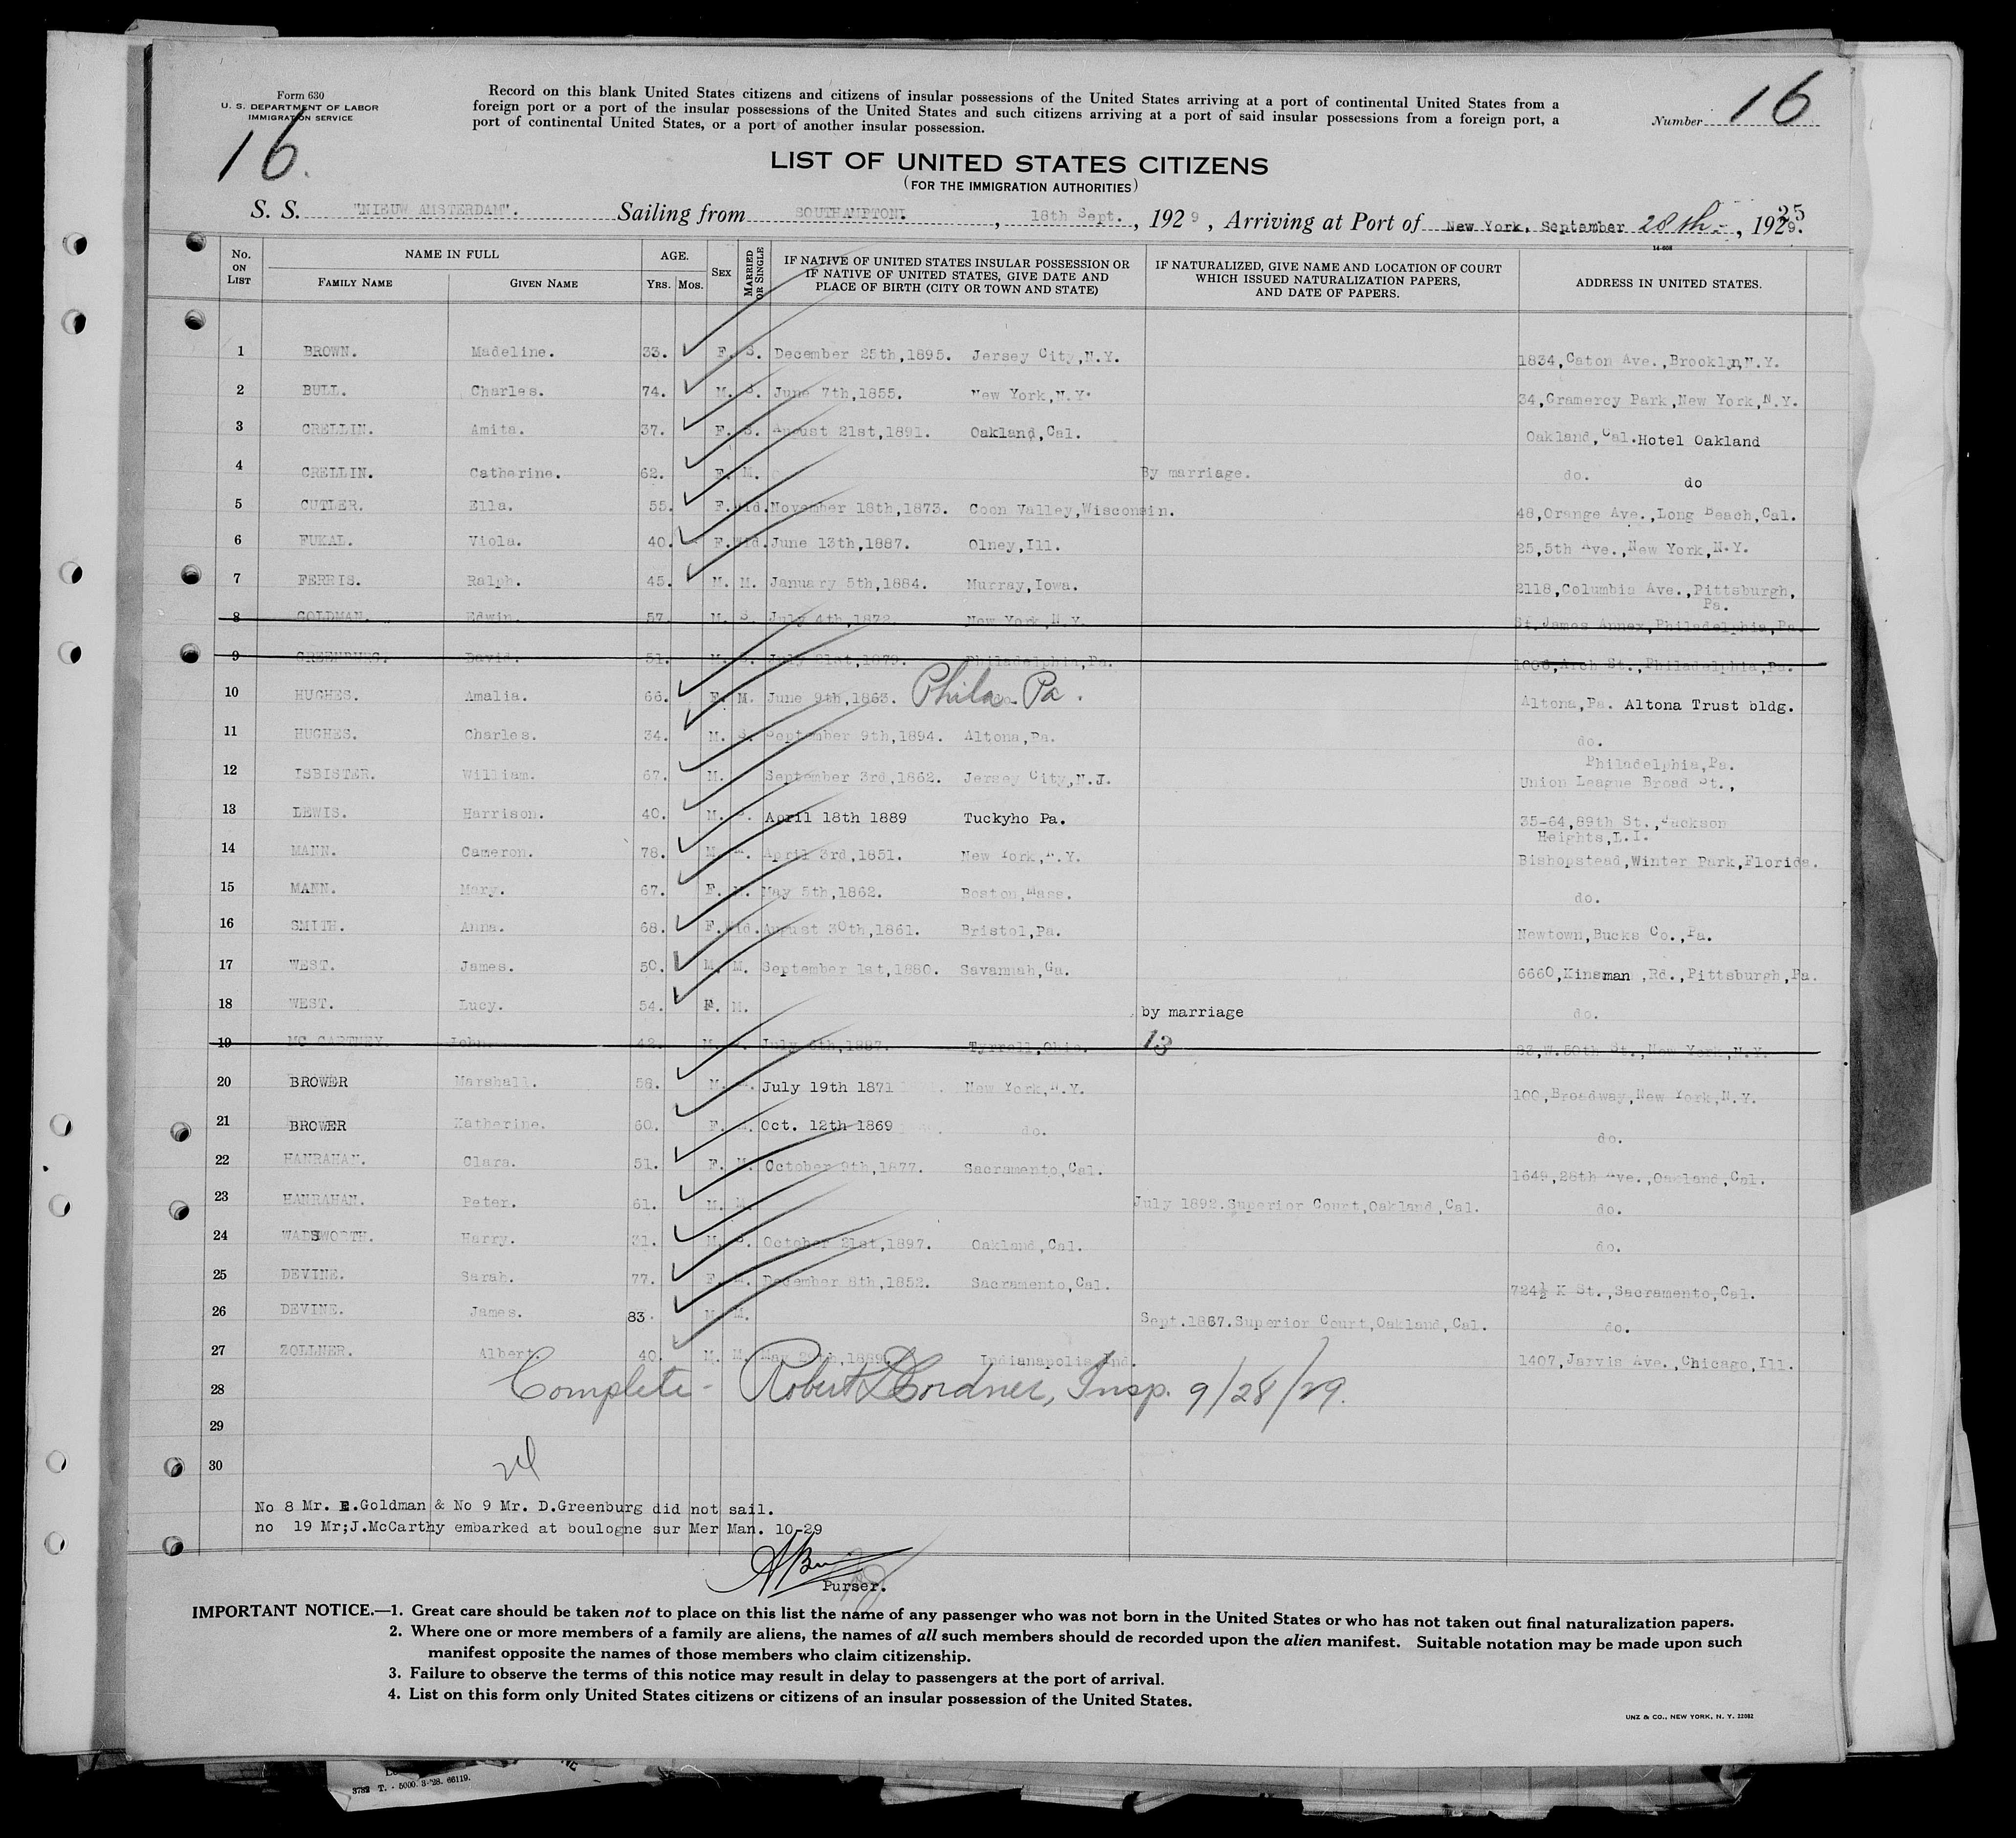 Form 630
U. S. DEPARTMENT OF LABOR
IMMIGRATION SERVICE
16.
Record on this blank United States citizens and citizens of insular possessions of the United States arriving at a port of continental United States from a
foreign port or a port of the insular possessions of the United States and such citizens arriving at a port of said insular possessions from a foreign port, a
port of continental United States, or a port of another insular possession.
Number 16
LIST OF UNITED STATES CITIZENS
(FOR THE IMMIGRATION AUTHORITIES)
S. S. "NIEUW AMSTERDAM". Sailing from SOUTHAMPTON. , 18th Sept. , 1929 , Arriving at Port of New York, September 28th , 1929.
25
14-608
No. ON LIST NAME IN FULL AGE. SEX MARRIED OR SINGLE IF NATIVE OF UNITED STATES INSULAR POSSESSION OR IF NATIVE OF UNITED STATES, GIVE DATE AND PLACE OF BIRTH (CITY OR TOWN AND STATE) IF NATURALIZED, GIVE NAME AND LOCATION OF COURT WHICH ISSUED NATURALIZATION PAPERS, AND DATE OF PAPERS. ADDRESS IN UNITED STATES.
FAMILY NAME GIVEN NAME YRS. MOS.
1 BROWN. Madeline. 33. F. S. December 25th,1895. Jersey City,N.Y. 1834,Caton Ave.,Brooklyn,N.Y.
2 BULL. Charles. 74. M. S. June 7th,1855. New York,N.Y. 34,Gramercy Park,New York,N.Y.
3 CRELLIN. Amita. 37. F. S. August 21st,1891. Oakland,Cal. Oakland,Cal.Hotel Oakland
4 CRELLIN. Catherine. 62. F. M. By marriage. do. do
5 CUTLER. Ella. 55. F. Wid. November 18th,1873. Coon Valley,Wisconsin. 48,Orange Ave.,Long Beach,Cal.
6 FUKAL. Viola. 40. F. Wid. June 13th,1887. Olney,Ill. 25,5th Ave.,New York,N.Y.
7 FERRIS. Ralph. 45. M. M. January 5th,1884. Murray,Iowa. 2118,Columbia Ave.,Pittsburgh,
Pa.
8 GOLDMAN. Edwin. 57. M. S. July 4th,1872. New York,N.Y. St.James Annex,Philadelphia,Pa.
9 GREENBURG. David. 51. M. S. July 21st,1879. Philadelphia,Pa. 1006,Arch St.,Philadelphia,Pa.
10 HUGHES. Amalia. 66. F. M. June 9th,1863. Phila Pa. Altona,Pa. Altona Trust bldg.
11 HUGHES. Charles. 34. M. S. September 9th,1894. Altona,Pa. do.
Philadelphia,Pa.
12 ISBISTER. William. 67. M. September 3rd,1862. Jersey City,N.J. Union League Broad St.,
13 LEWIS. Harrison. 40. M. S. April 18th 1889 Tuckyho Pa. 35-64,89th St.,Jackson
Heights,L.I.
14 MANN. Cameron. 78. M. M. April 3rd,1851. New York,N.Y. Bishopstead,Winter Park,Florida.
15 MANN. Mary. 67. F. M. May 5th,1862. Boston,Mass. do.
16 SMITH. Anna. 68. F. Wid. August 30th,1861. Bristol,Pa. Newtown,Bucks Co.,Pa.
17 WEST. James. 50. M. M. September 1st,1880. Savannah,Ga. 6660,Kinsman ,Rd.,Pittsburgh,Pa.
18 WEST. Lucy. 54. F. M. by marriage do.
19 MC CARTHEY. John. 42. M. July 6th,1887. Tyrrell,Ohio. 13 83,W.50th St.,New York,N.Y.
20 BROWER Marshall. 58. M. M. July 19th 1871 New York,N.Y. 100,Broadway,New York,N.Y.
21 BROWER Katherine. 60. F. M. Oct. 12th 1869 do. do.
22 HANRAHAN. Clara. 51. F. M. October 9th,1877. Sacramento,Cal. 1649,28th Ave.,Oakland,Cal.
23 HANRAHAN. Peter. 61. M. M. July 1892.Superior Court,Oakland,Cal. do.
24 WADSWORTH. Harry. 31. M. S. October 21st,1897. Oakland,Cal. do.
25 DEVINE. Sarah. 77. F. M. December 8th,1852. Sacramento,Cal. 724½ K St.,Sacramento,Cal.
26 DEVINE. James. 83. M. M. Sept.1867.Superior Court,Oakland,Cal. do.
27 ZOLLNER. Albert. 40. M. M. May 29th,1889. Indianapolis,Ind. 1407,Jarvis Ave.,Chicago,Ill.
28 Complete - Robert D Cordner, Insp. 9/28/29.
29
30
No 8 Mr. E.Goldman & No 9 Mr. D.Greenburg did not sail.
no 19 Mr;J.McCarthy embarked at boulogne sur Mer Man. 10-29
Purser.
IMPORTANT NOTICE.—1. Great care should be taken not to place on this list the name of any passenger who was not born in the United States or who has not taken out final naturalization papers.
2. Where one or more members of a family are aliens, the names of all such members should de recorded upon the alien manifest. Suitable notation may be made upon such
manifest opposite the names of those members who claim citizenship.
3. Failure to observe the terms of this notice may result in delay to passengers at the port of arrival.
4. List on this form only United States citizens or citizens of an insular possession of the United States.
UNZ & CO., NEW YORK, N. Y. 22082
3782 T. - 5000. 3-'28. 66119.